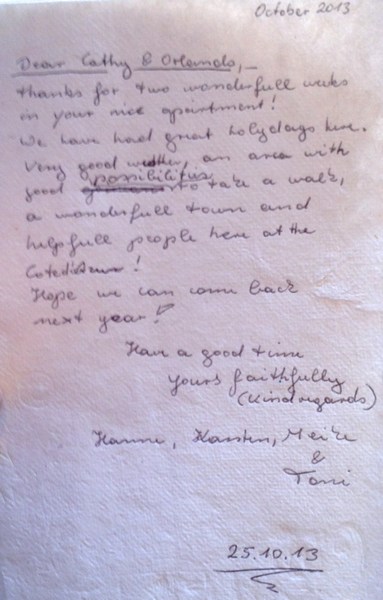 October 2013
Dear Cathy & Orlando,
thanks for two wonderfull weeks
in your nice apartment!
We have had great holydays here.
Very good weather, an area with
good possibilities to take a walk,
a wonderfull town and
helpfull people here at the
Hope we can come back
next year!
Have a good time
Yours faithfully
(Kind regards)
Hanne, Karsten, Meike
&
Toni
25.10.13